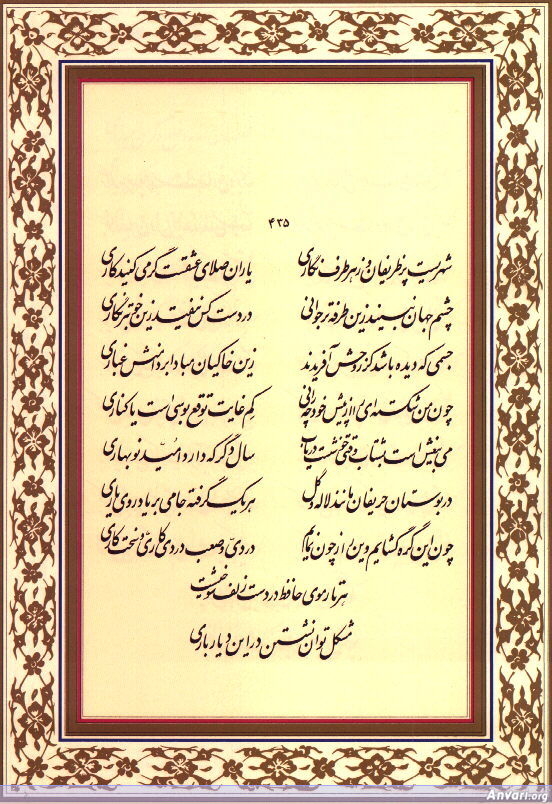 ۴۳۵
شهریست پر ظریفان وز هر طرف نگاری یاران صلای عشقست گر می کنید کاری
چشم جهان نبیند زین طرفه تر جوانی در دست کس نیفتد زین خوبتر نگاری
جسمی که دیده باشد کز روحش آفریدند زین خاکیان مبادا بر دامنش غباری
چون من شکسته ای را از پیش خود چه رانی کم غایت توقع بوسی است یا کناری
می بیغش است بشتاب وقتی خوشست دریاب سال دگر که دارد امید نوبهاری
در بوستان حریفان مانند لاله و گل هر یک گرفته جامی بر یاد روی یاری
چون این گره گشایم وین راز چون نمایم دردی و صعب دردی کاری و سخت کاری
هر تار موی حافظ در دست زلف شوخیست
مشکل توان نشستن در این دیار باری
Anvari.org